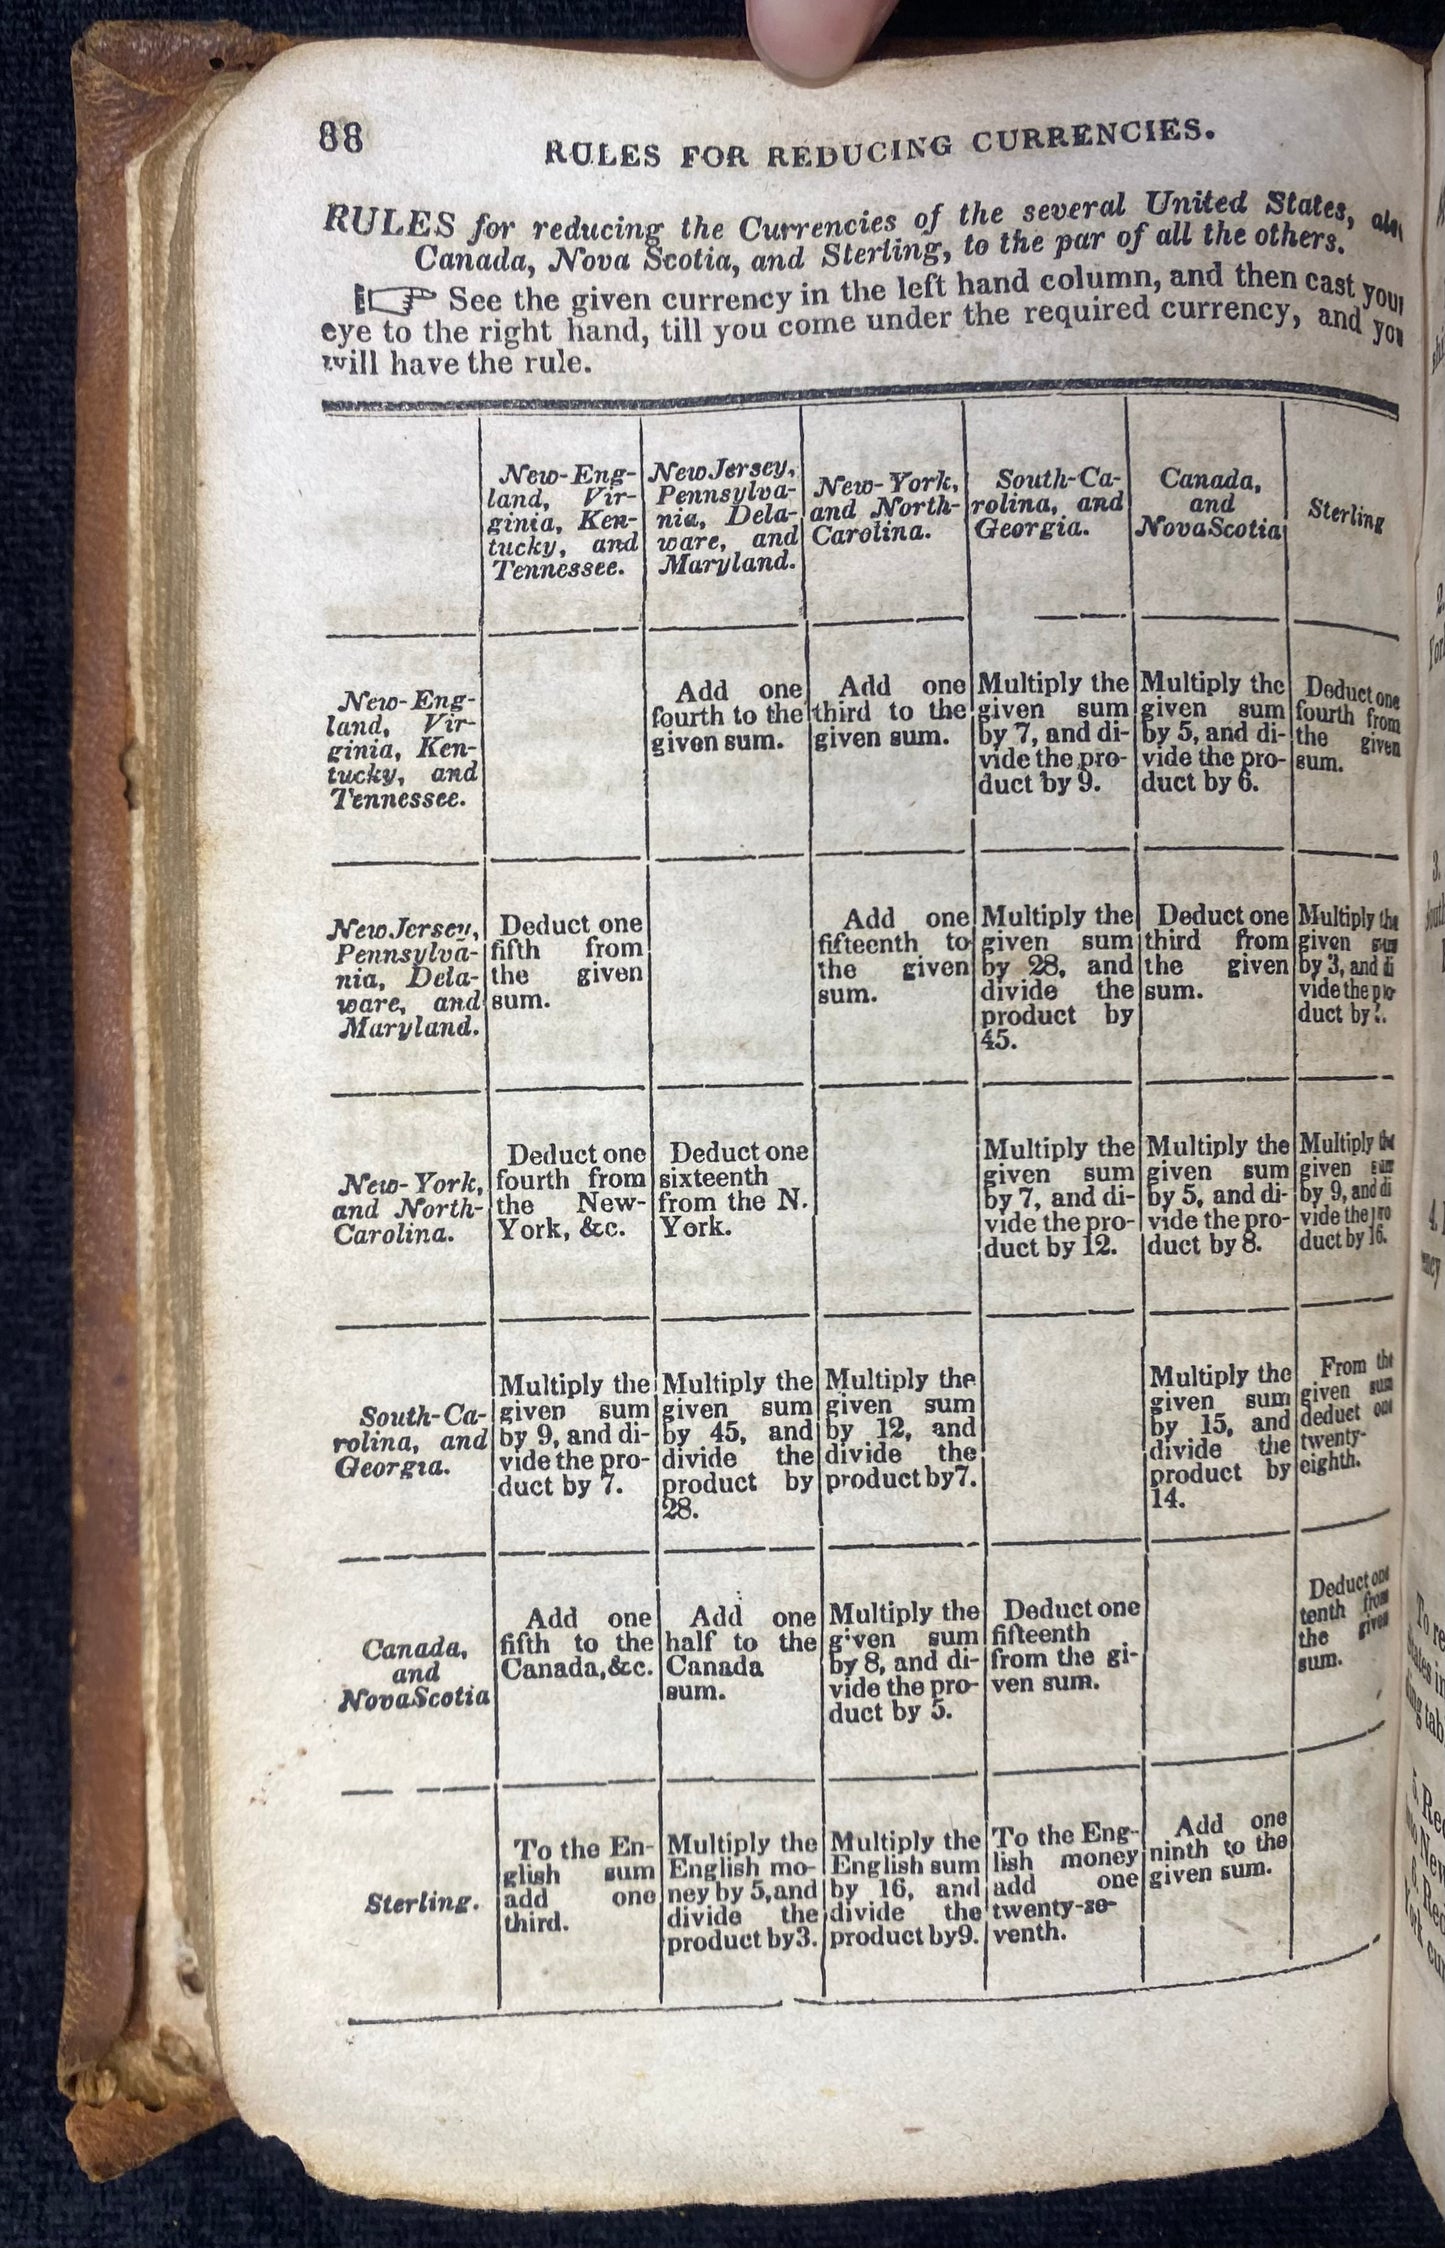 88
RULES FOR REDUCING CURRENCIES.
RULES for reducing the Currencies of the several United States,
Canada, Nova Scotia, and Sterling, to the par of all the others.
☞ See the given currency in the left hand column, and then cast your
eye to the right hand, till you come under the required currency, and you
will have the rule.
New-Eng-
land, Vir-
ginia, Ken-
tucky, and
Tennessee.
New Jersey,
Pennsylva-
nia, Dela-
ware, and
Maryland.
New-York,
and North-
Carolina.
South-Ca-
rolina, and
Georgia.
Canada,
and
NovaScotia
Sterling
New-Eng-
land, Vir-
ginia, Ken-
tucky, and
Tennessee.
Add one
fourth to the
given sum.
Add one
third to the
given sum.
Multiply the
given sum
by 7, and di-
vide the pro-
duct by 9.
Multiply the
given sum
by 5, and di-
vide the pro-
duct by 6.
Deduct one
fourth from
the given
sum.
New Jersey,
Pennsylva-
nia, Dela-
ware, and
Maryland.
Deduct one
fifth from
the given
sum.
Add one
fifteenth to
the given
sum.
Multiply the
given sum
by 28, and
divide the
product by
45.
Deduct one
third from
the given
sum.
Multiply the
given sum
by 3, and di
vide the pro-
duct by
New-York,
and North-
Carolina.
Deduct one
fourth from
the New-
York, &c.
Deduct one
sixteenth
from the N.
York.
Multiply the
given sum
by 7, and di-
vide the pro-
duct by 12.
Multiply the
given sum
by 5, and di-
vide the pro-
duct by 8.
Multiply the
given sum
by 9, and di
vide the pro
duct by 16.
South-Ca-
rolina, and
Georgia.
Multiply the
given sum
by 9, and di-
vide the pro-
duct by 7.
Multiply the
given sum
by 45, and
divide the
product by
28.
Multiply the
given sum
by 12, and
divide the
product by7.
Multiply the
given sum
by 15, and
divide the
product by
14.
From the
given sum
deduct one
twenty-
eighth.
Canada,
and
NovaScotia
Add one
fifth to the
Canada,&c.
Add one
half to the
Canada
sum.
Multiply the
given sum
by 8, and di-
vide the pro-
duct by 5.
Deduct one
fifteenth
from the gi-
ven sum.
Deduct one
tenth from
the given
sum.
Sterling.
To the En-
glish sum
add one
third.
Multiply the
English mo-
ney by 5,and
divide the
product by3.
Multiply the
English sum
by 16, and
divide the
product by9.
To the Eng-
lish money
add one
twenty-se-
venth.
Add one
ninth to the
given sum.